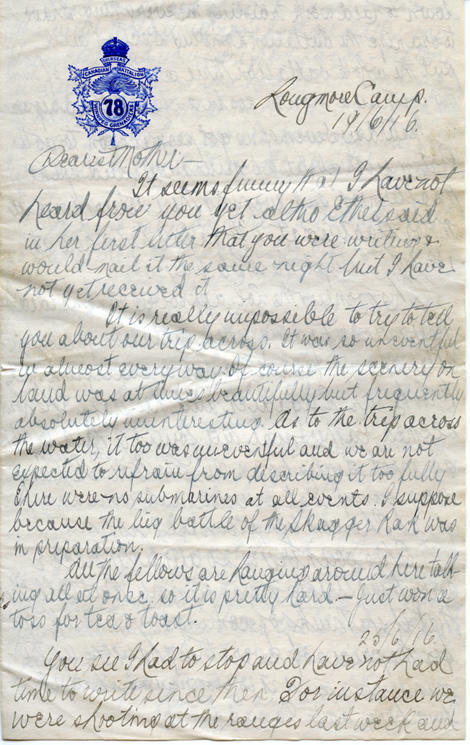 OVERSEAS
CANADIAN BATTALION
78
WINNIPEG GRENADIERS
Longmore Camp.
19/6/16.
Dearest Mother—
It seems funny that I have not
heard from you yet altho Ethel said
in her first letter that you were writing &
would mail it the same night but I have
not yet received it.
It is really impossible to try to tell
you about our trip across. It was so uneventful
in almost every way. Of course the scenery on
land was at times beautifully but frequently
absolutely uninteresting. As to the trip across
the water, it too was uneventful and we are not
expected to refrain from describing it too fully
There were no submarines at all events. I suppose
because the big battle of the Skagger Rak was
in preparation.
All the fellows are hanging around here talk-
ing all at once, so it is pretty hard — Just won a
toss for tea & toast.
25/6/16.
You see I had to stop and have not had
time to write since then. For instance we
were shooting at the ranges last week and